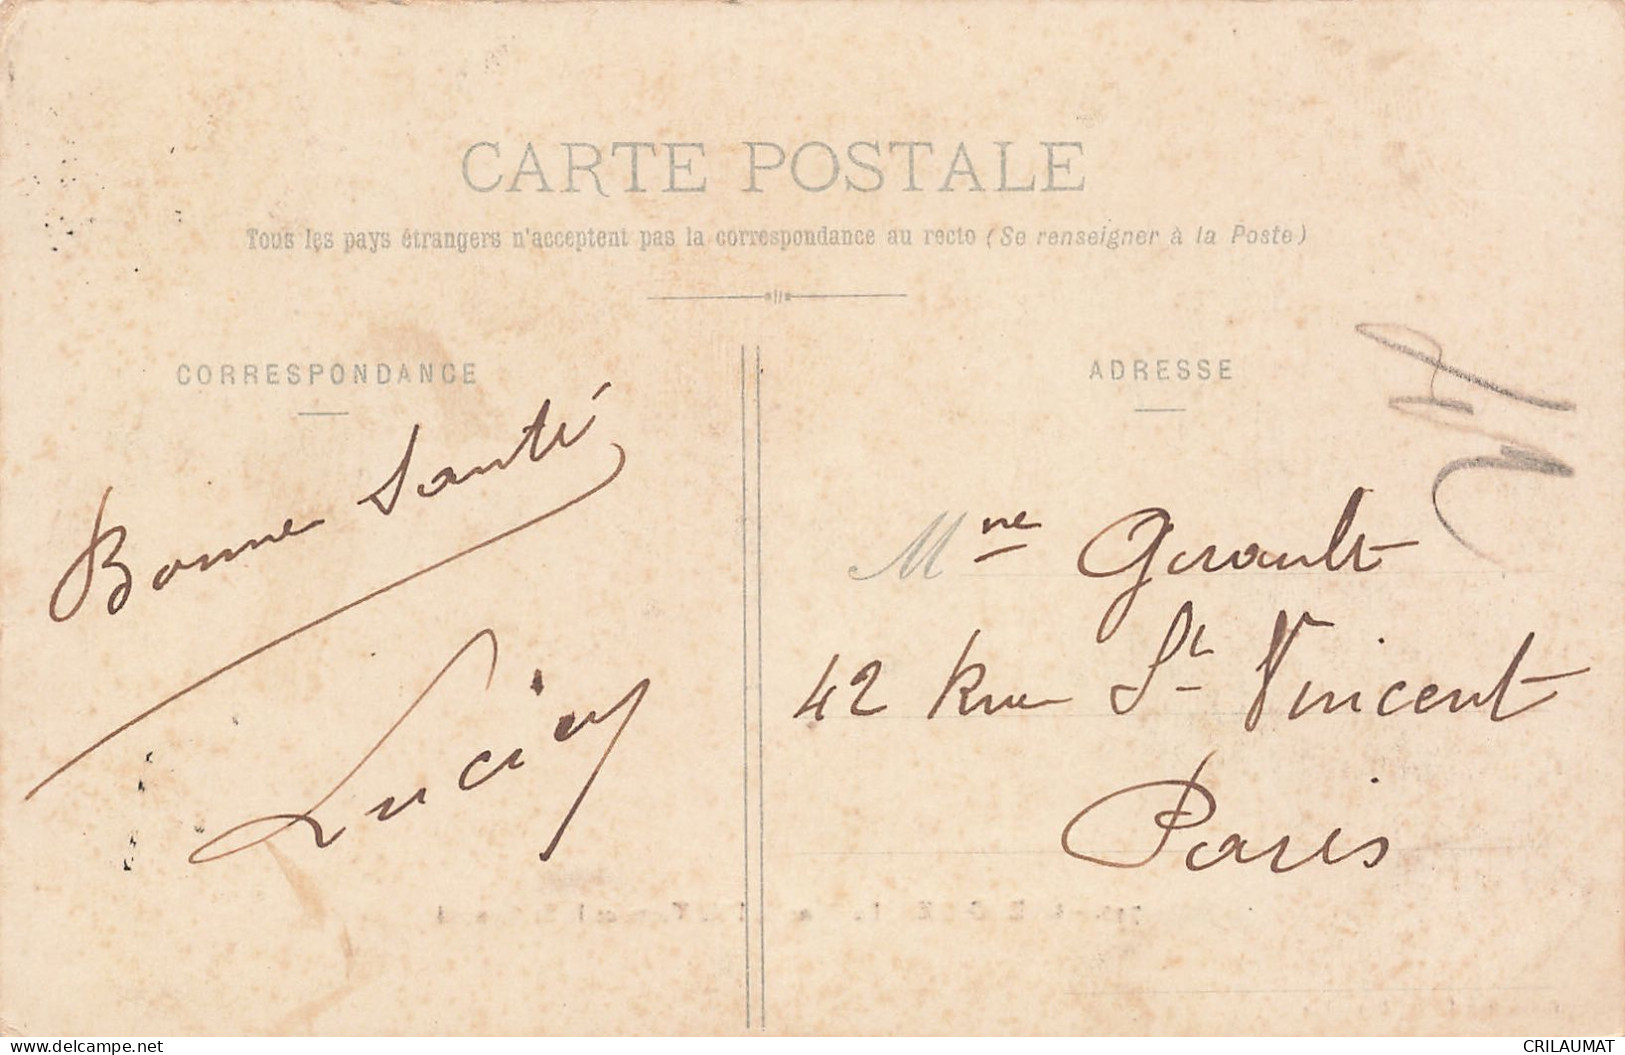 CARTE POSTALE
Tous les pays étrangers n'acceptent pas la correspondance au recto (Se renseigner à la Poste)
CORRESPONDANCE
Bonne Santé
Lucien
ADRESSE
Mme Girault
42 Rue St Vincent
Paris
www.delcampe.net
CRILAUMAT